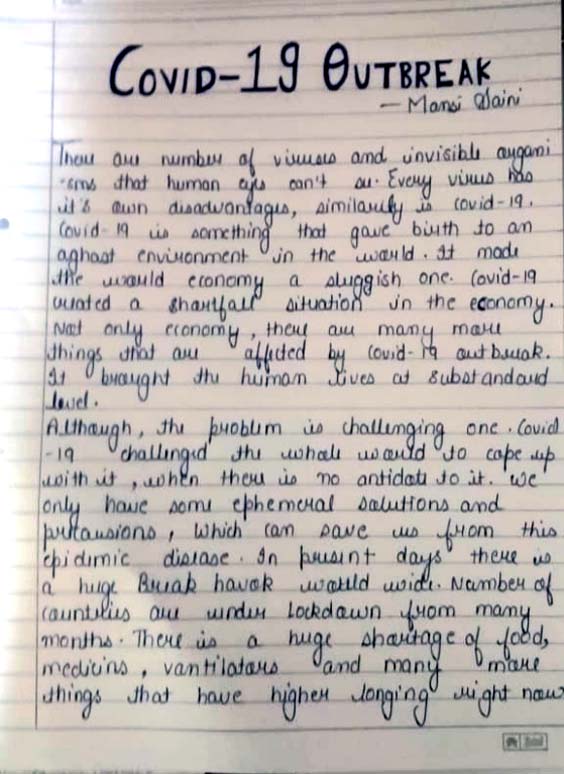 COVID-19 OUTBREAK
- Mansi Saini
There are number of viruses and invisible organi
-sms that human eye can't see. Every virus has
it's own disadvantages, similarily is covid-19.
Covid-19 is something that gave birth to an
aghast environment in the world. It made
the would economy a sluggish one. Covid-19
created a shortfall situation in the economy.
Not only economy, there are many more
things that are affected by Covid-19 outbreak.
It brought the human lives at substandard
level.
Although, the problem is challenging one. Covid
-19 challenged the whole world to cope up
with it, when there is no antidote to it. We
only have some ephemeral solutions and
precausions, which can save us from this
epidemic disease. In present days there is
a huge Break havok world wide. Number of
countries are under lockdown from many
months. There is a huge shortage of food,
medicins, vantilators and many more
things that have higher longing right now